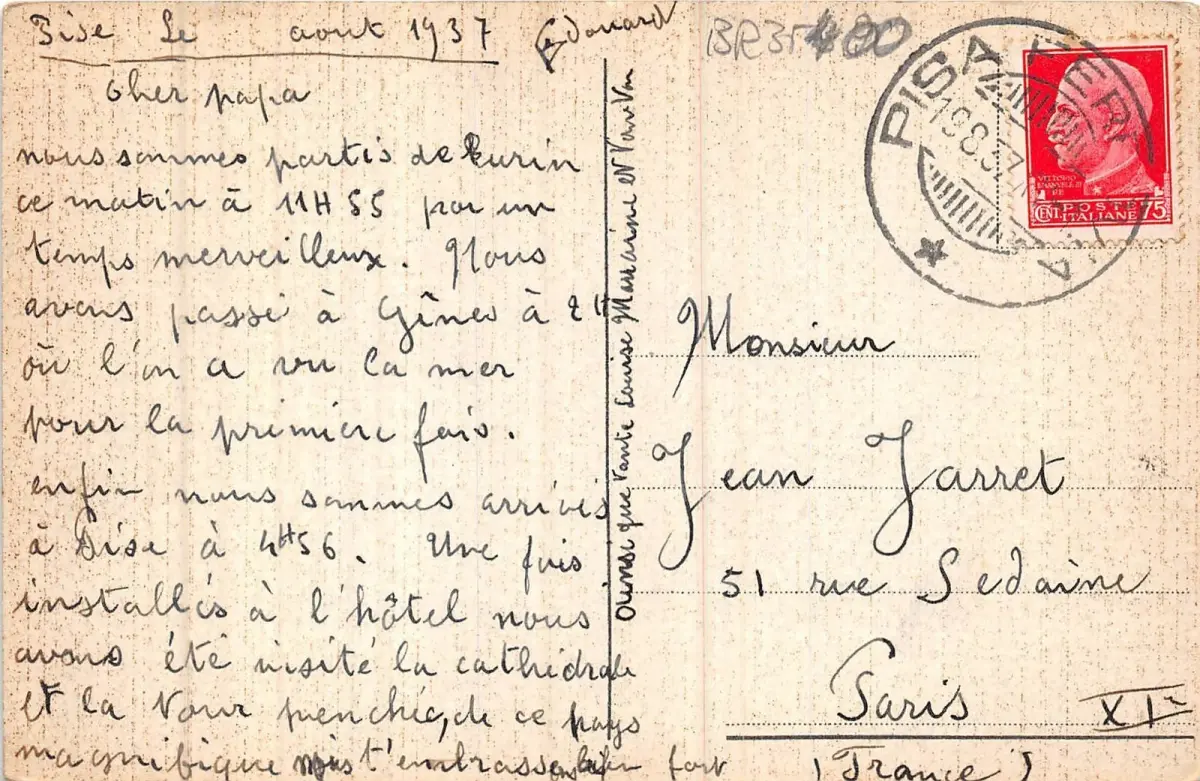 Pise le août 1937
Edouard
Cher papa
nous sommes partis de Turin
ce matin à 11H55 par un
temps merveilleux. Nous
avons passé à Gênes à 2H
où l'on a vu la mer
pour la première fois.
enfin nous sommes arrivés
à Pise à 4H56. Une fois
installés à l'hôtel nous
avons été visité la cathédrale
et la Tour penchée, de ce pays
magnifique t'embrassons bien fort
ainsi que tante Louise Marraine et
PISA FERROVIA
19 8 37
VITTORIO
EMANUELE III
RE
CENT. POSTE 75
ITALIANE
Monsieur
Jean Jarret
51 rue Sedaine
Paris XIe
(France)